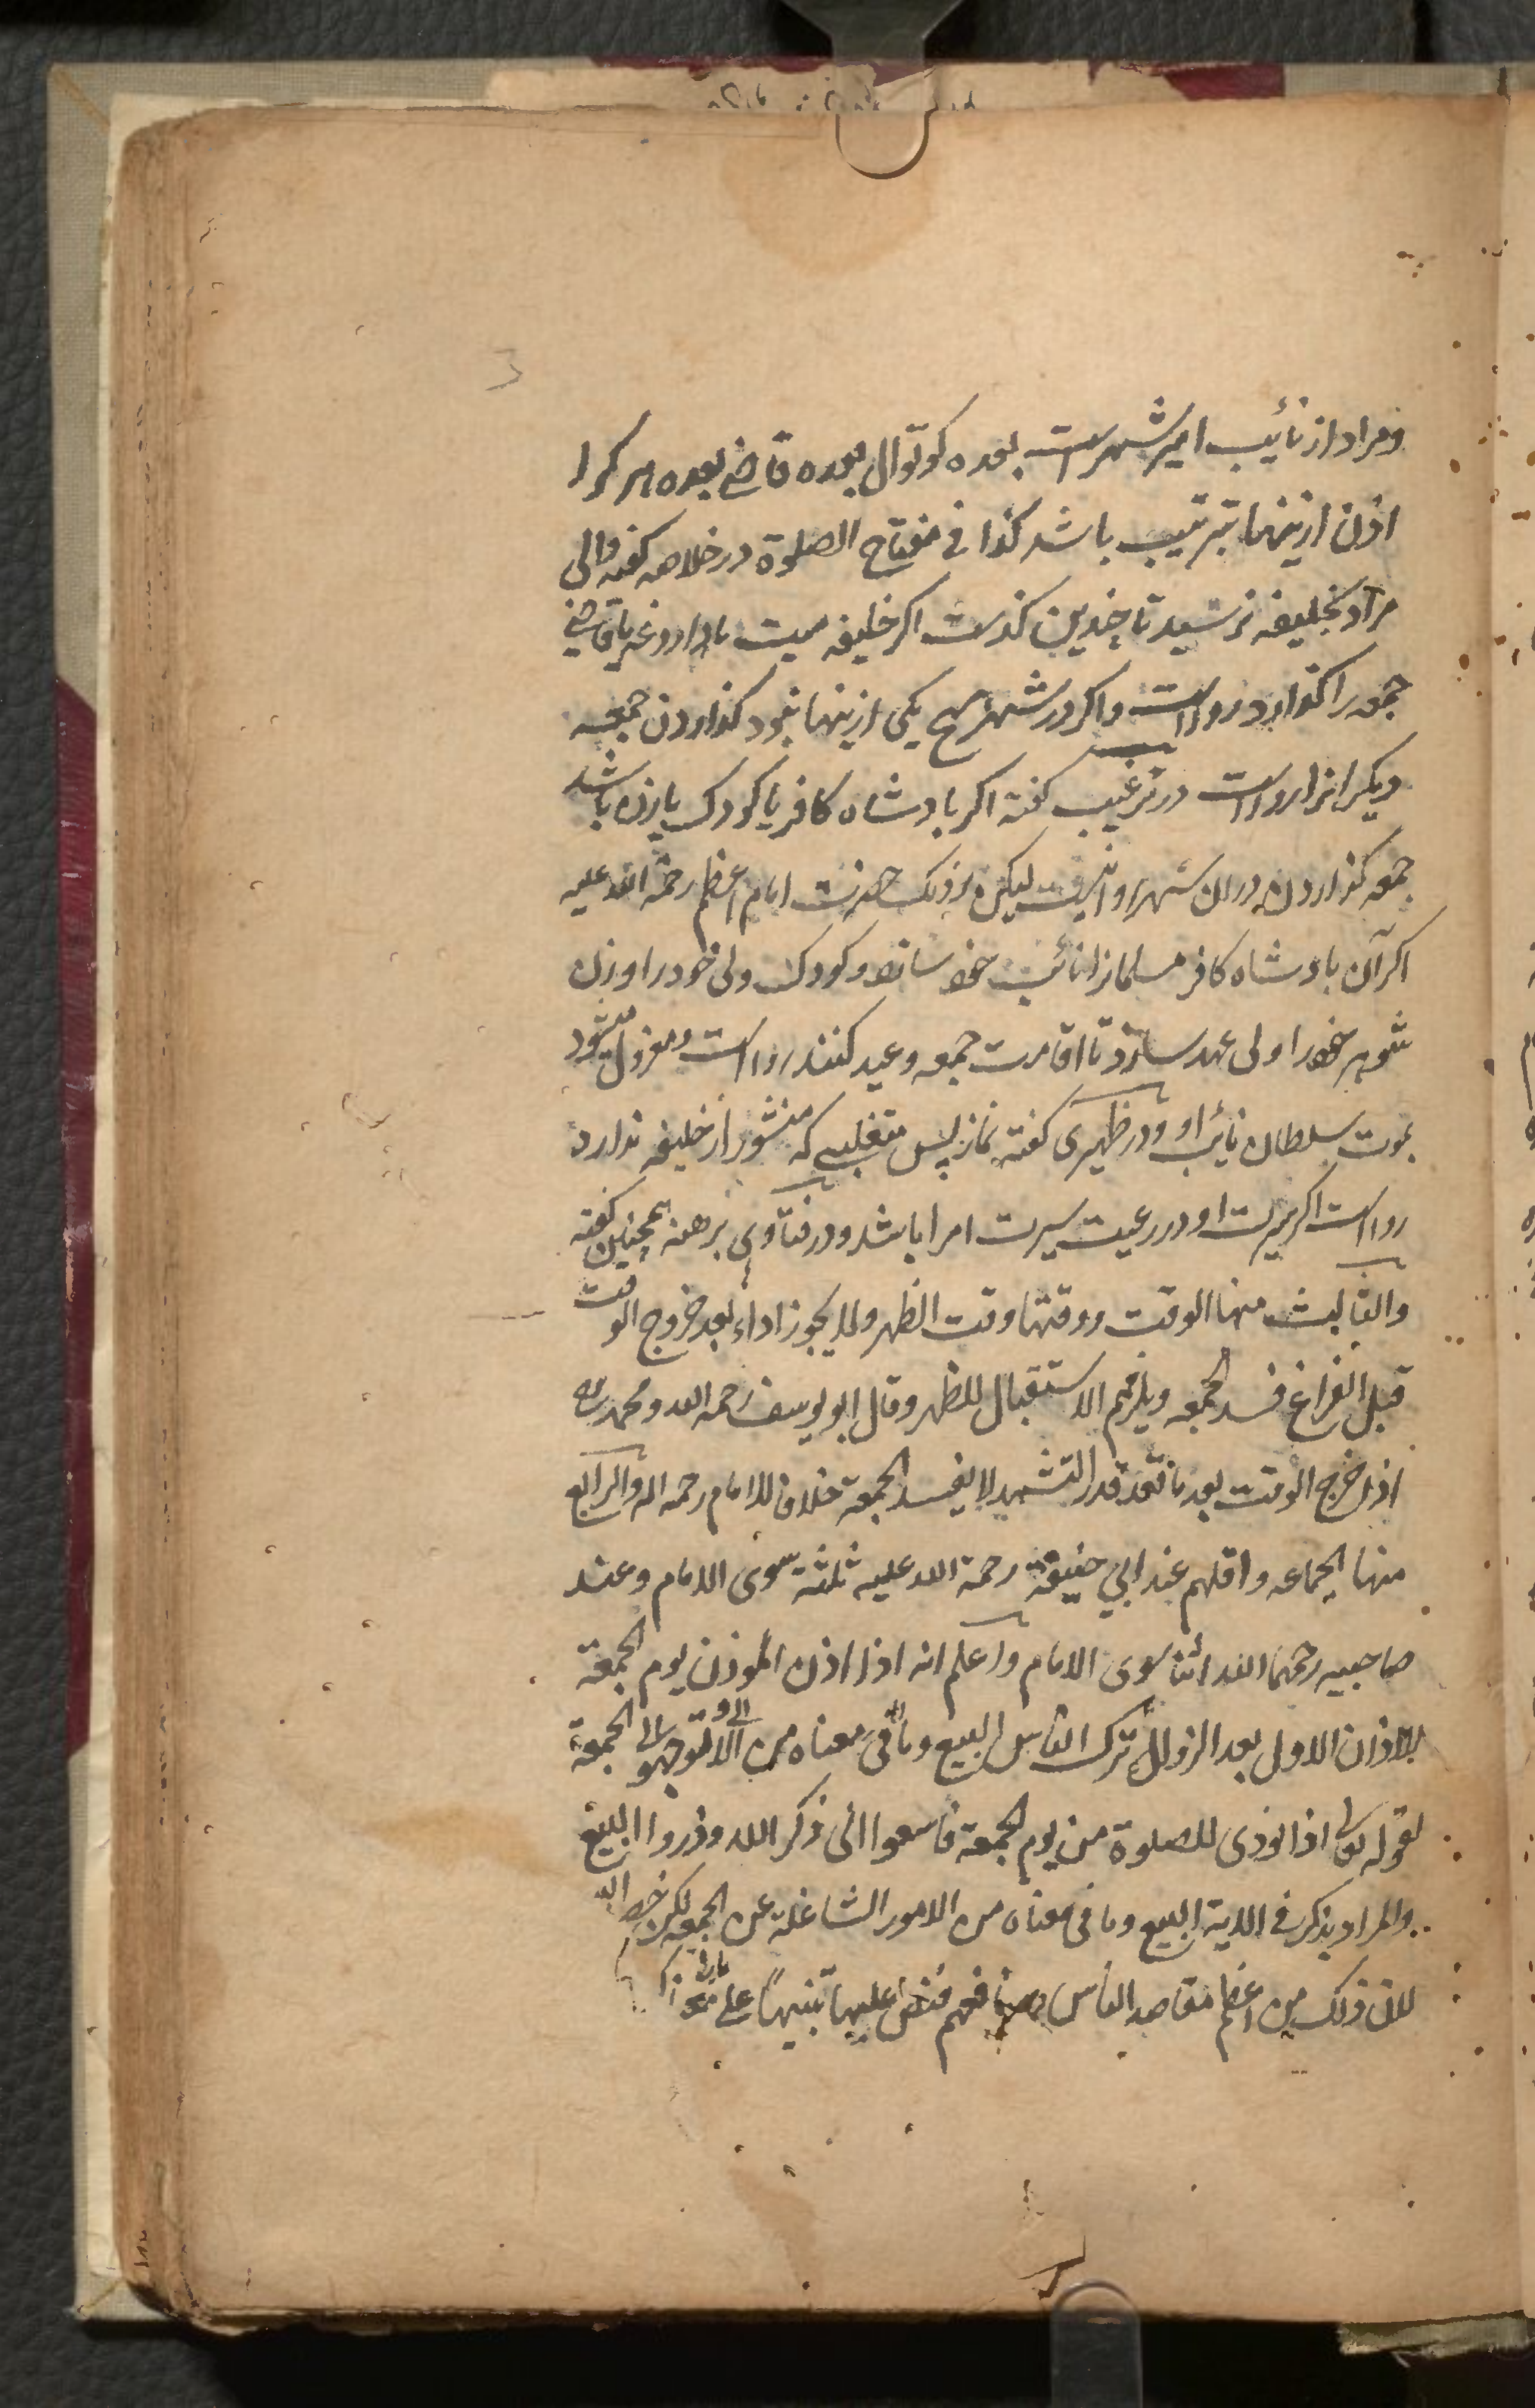 ومراد از نائب امیر شهرست بعده کوتوال بعده قاضی بعده هر کرا
اذن ازینها بترتیب باشد کذا فی مفتاح الصلوة در خلاصه گفته والی
مرد بخلیفه نرسید تا چندین گذشت اگر خلیفه میت یا داروغه یا قاضی
جمعه را گذارد رواست واگر در شهر هیچ یکی ازینها نبود گذاردن جمعه
دیگرانرا رواست در ترغیب گفته اگر بادشاه کافر یا کودک یا زن باشد
جمعه گذاردن دران شهر روا نیست لیکن نزدیک حضرت امام اعظم رحمة الله علیه
اگر آن بادشاه کافر مسلمانرا نائب خود سازد و کودک ولی خود را و زن
شوهر خود را ولی عهد سازد تا اقامت جمعه و عید کنند رواست و معزول میشود
بموت سلطان نائب او و در ظهیری گفته نماز پس متغلبی که منشور از خلیفه ندارد
رواست اگر سیرت او در رعیت سیرت امرا باشد و در فتاوی برهنه همچنین گفته
والثالث منها الوقت ووقتها وقت الظهر ولا یجوز اداء بعد خروج الوقت
قبل الفراغ فسد الجمعه ویلزمهم الاستقبال للظهر وقال ابو یوسف رحمه الله ومحمد رحمه
اذا خرج الوقت بعد ما قعد قدر التشهد لا یفسد الجمعة خلافا للامام رحمه الله والرابع
منها الجماعه واقلهم عند ابی حنیفة رحمة الله علیه ثلثة سوی الامام وعند
صاحبیه رحمهما الله اثنا سوی الامام واعلم انه اذا اذن الموذن یوم الجمعة
بالاذان الاول بعد الزوال ترک الناس البیع وما فی معناه من توجهوا الی الجمعة
لقوله تعالی اذا نودی للصلوة من یوم الجمعة فاسعوا الی ذکر الله وذروا البیع
والمراد بذکر فی الایة البیع وما فی معناه من الامور الشاغلة عن الجمعه لکن خص الله
لان ذلک من اعظم مقاصد الناس ومنافعهم فنص علیها تنبیها علی